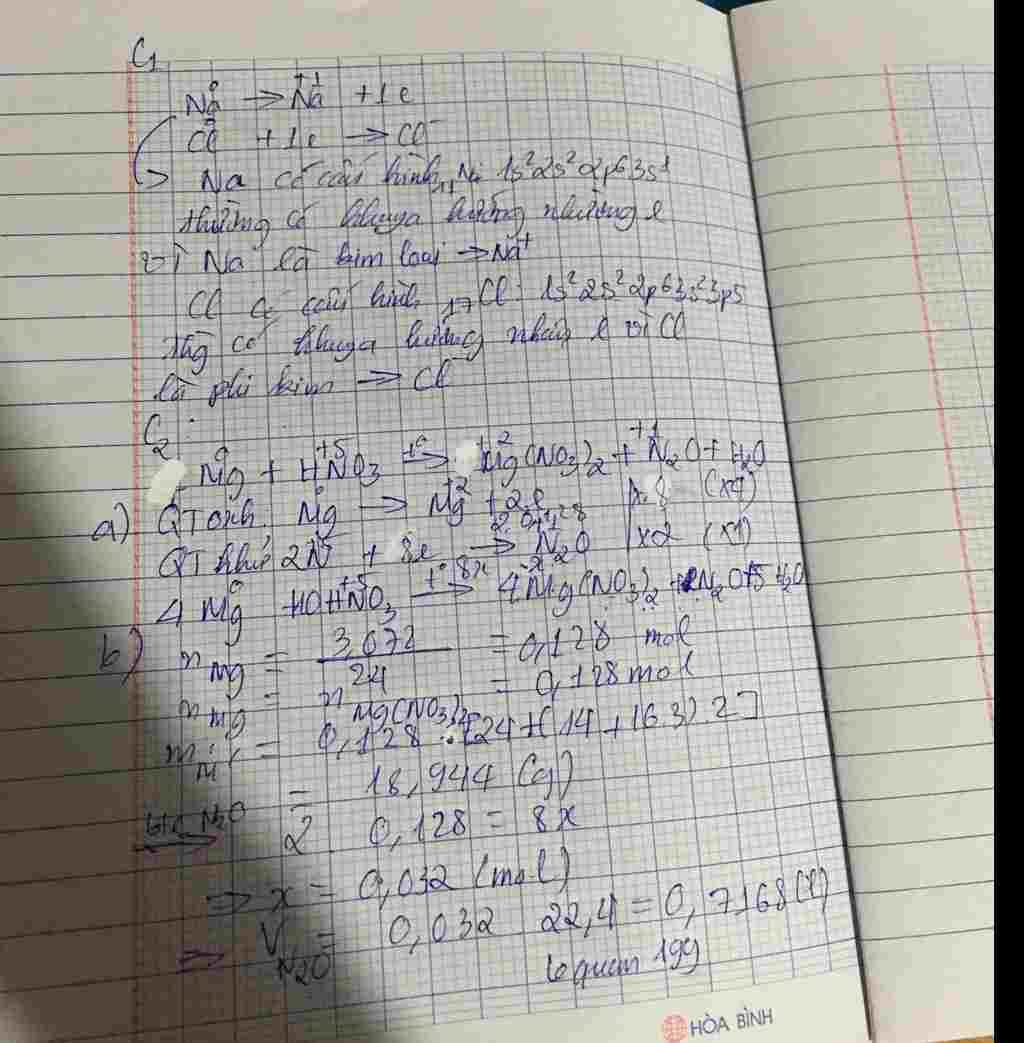 C1
Na⁰ → Na⁺¹ + 1e
Cl⁰ + 1e → Cl⁻
→ Na có cấu hình ₁₁Na 1s²2s²2p⁶3s¹
thường có khuya hướng nhường e
vì Na là kim loại → Na⁺
Cl có cấu hình ₁₇Cl: 1s²2s²2p⁶3s²3p5
thg có khuya hướng nhận e vì Cl
là phi kim → Cl⁻
C2:
Mg⁰ + HN⁺⁵O₃ t° → Mg⁺²(NO₃)₂ + N⁺¹₂O + H₂O
a) QT oxh: Mg⁰ → Mg⁺² + 2e x8 (x4)
QT khử 2N⁺⁵ + 8e → N₂O x2 (x1)
4Mg⁰ + 10HN⁺⁵O₃ t° → 4Mg(NO₃)₂ + N₂O + 5H₂O
b) nMg = 3,072/24 = 0,128 mol
nMg = nMg(NO₃)₂ = 0,128 mol
m = 0,128 . [24+(14+16.3).2]
= 18,944 (g)
2 . 0,128 = 8x
⇒ x = 0,032 (mol)
⇒ VN₂O = 0,032 22,4 = 0,7168 (l)
lequem 199
HÒA BÌNH